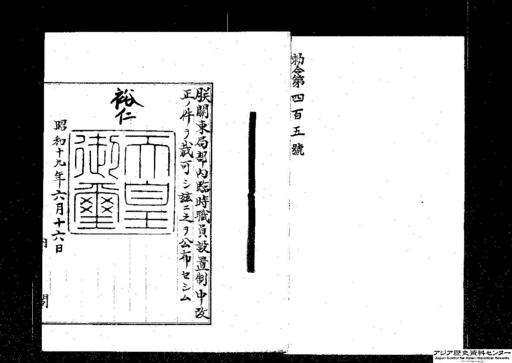 勅令第四百五號
朕關東局部內臨時職員設置制中改
正ノ件ヲ裁可シ茲ニ之ヲ公布セシム
裕仁
天皇御璽
昭和十九年六月十六日
內閣
アジア歴史資料センター
Japan Center for Asian Historical Records